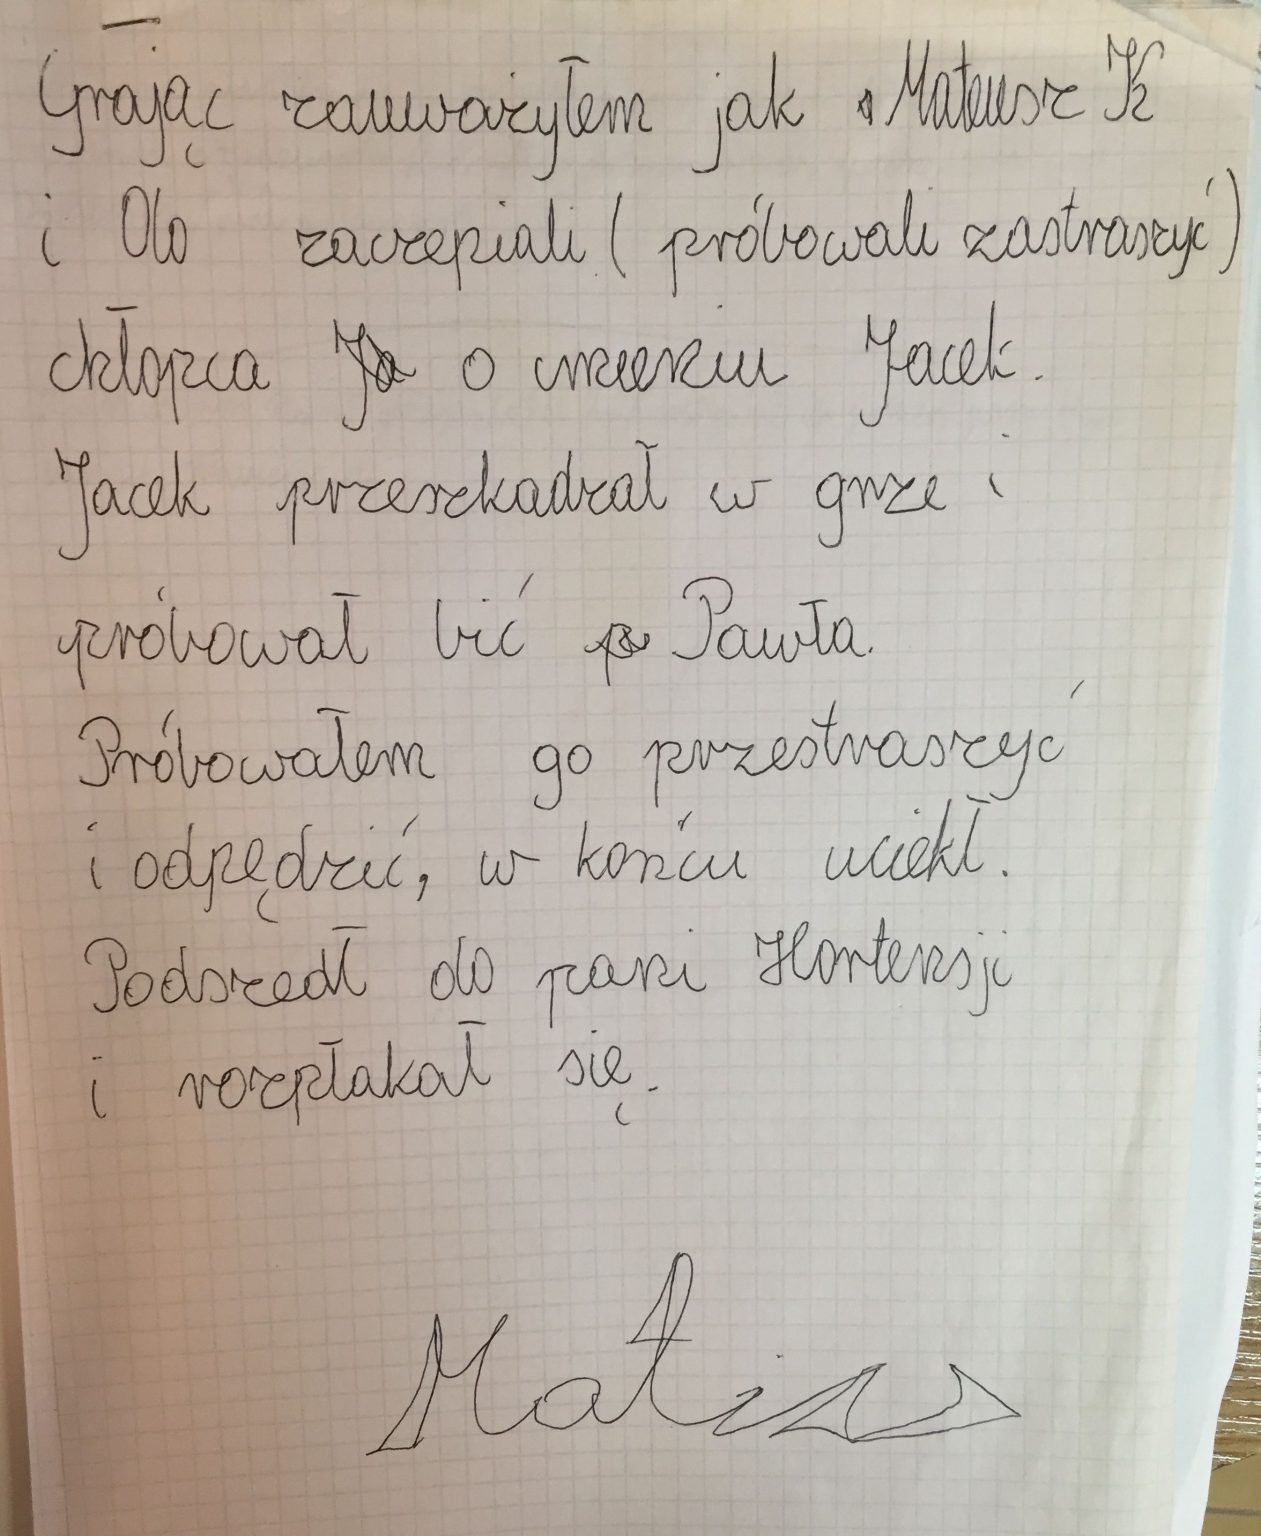 Grając zauważyłem jak Mateusz K
i Olo zaczepiali (próbowali zastraszyć)
chłopca o imieniu Jacek.
Jacek przeszkadzał w grze i
próbował bić Pawła.
Próbowałem go przestraszyć
i odpędzić, w końcu uciekł.
Podszedł do pani Hortensji
i rozpłakał się.